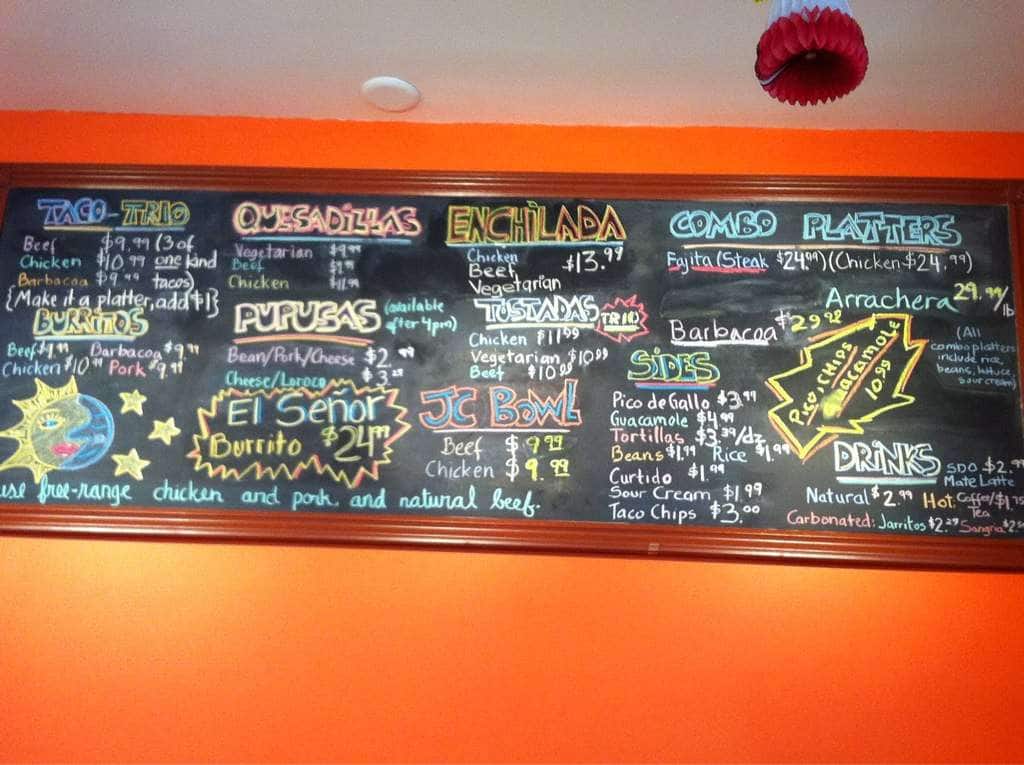 TACO-TRIO
Beef $9.99 (3 of
Chicken $10.99 one kind
Barbacoa $9.99 tacos)
{Make it a platter, add $1}
BURRITOS
Beef $9.99 Barbacoa $9.99
Chicken $10.99 Pork $9.99
QUESADILLAS
Vegetarian $9.99
Beef $9.99
Chicken $11.99
PUPUSAS (available
after 4pm)
Bean/Pork/Cheese $2.99
Cheese/Loroco $3.25
El Señor
Burrito $24.99
use free-range chicken and pork, and natural beef.
ENCHILADA
Chicken
Beef $13.99
Vegetarian
TOSTADAS
TRIO
Chicken $11.99
Vegetarian $10.99
Beef $10.99
JC BOWL
Beef $9.99
Chicken $9.99
COMBO PLATTERS
Fajita (Steak $24.99) (Chicken $24.99)
Arrachera 29.99/lb
Barbacoa $29.98
(All
combo platters
include rice,
beans, lettuce,
sour cream)
SIDES
Pico de Gallo $3.99
Guacamole $4.99
Tortillas $3.39/dz
Beans $1.99 Rice $1.99
Curtido $1.99
Sour Cream $1.99
Taco Chips $3.00
PICO, CHIPS
Guacamole
10.99
DRINKS
SDO $2.
Mate Latte
Natural $2.99 Hot: Coffee/ $1.75
Tea
Carbonated: Jarritos $2.25 Sangria $2.50